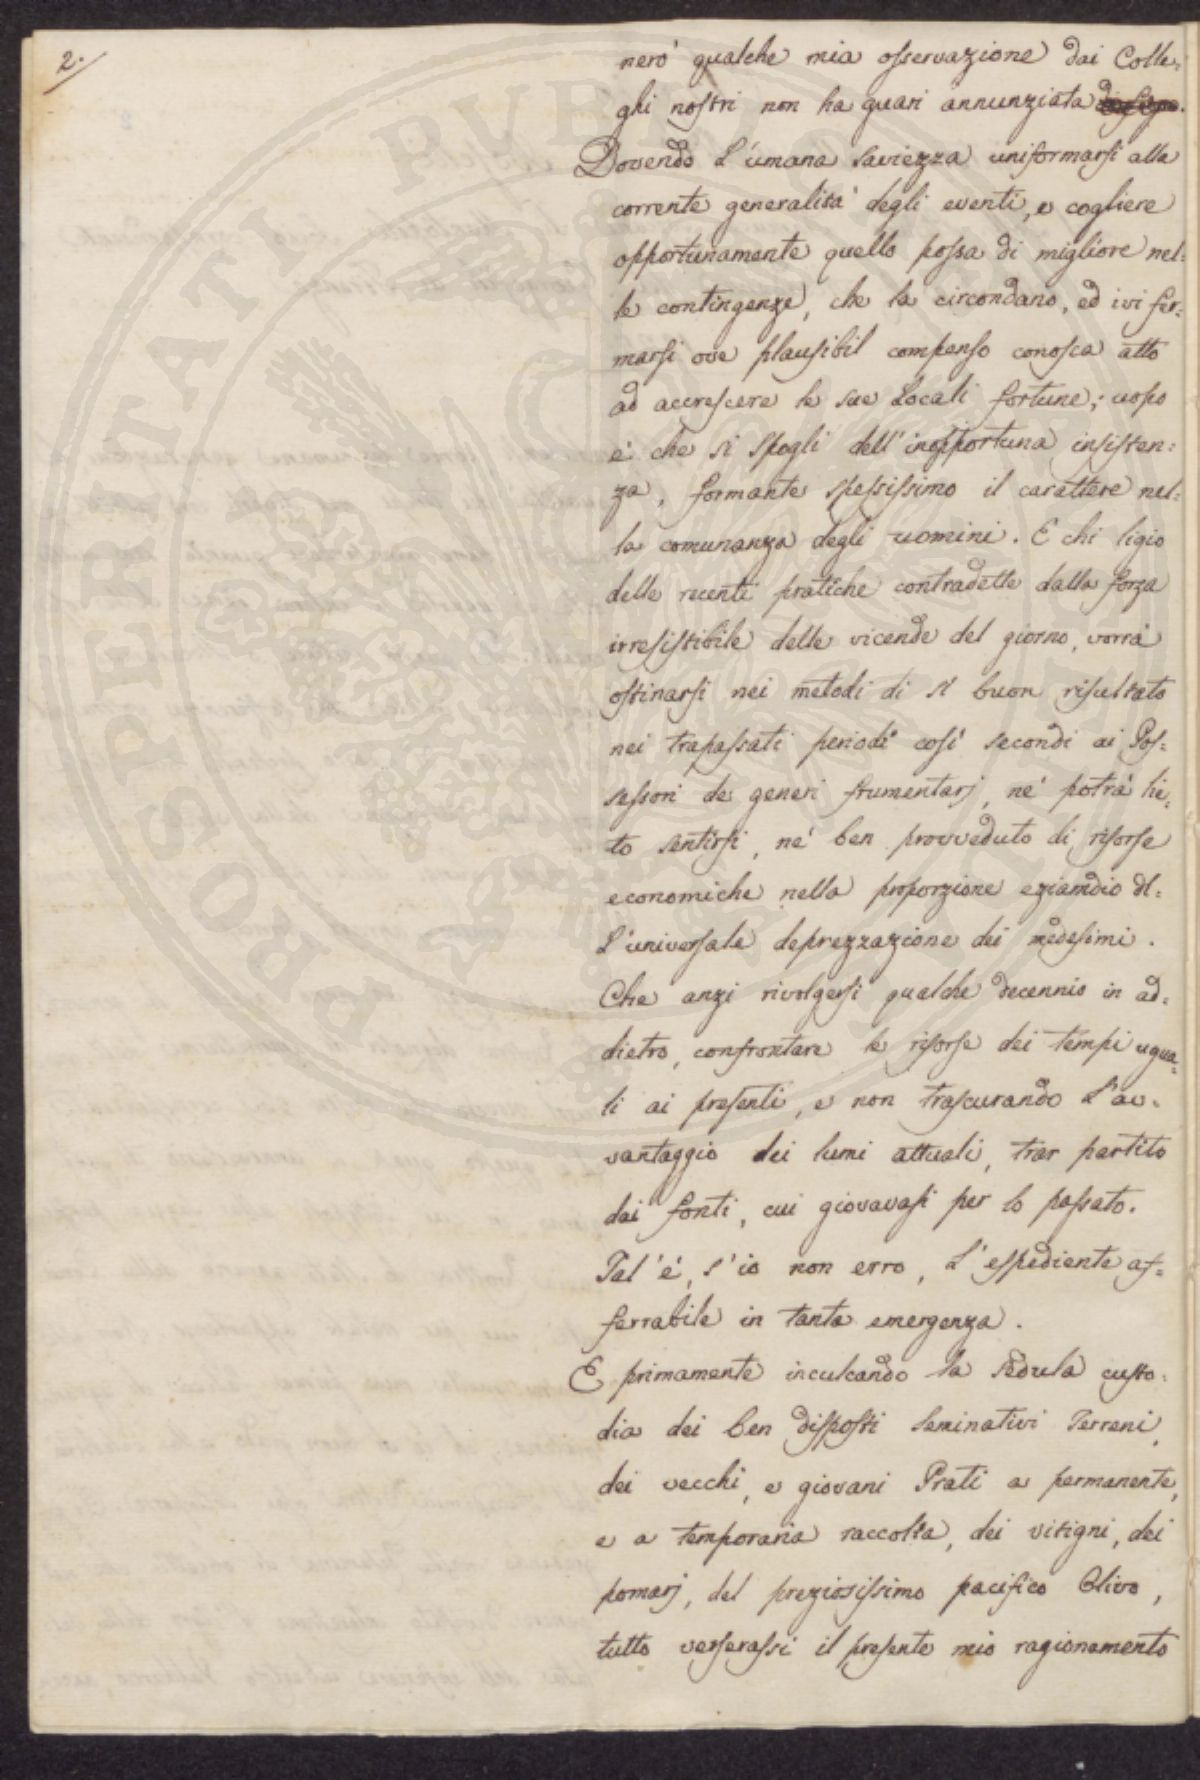 2.
nerò qualche mia osservazione dai Colle=
ghi nostri non ha guari annunziata.
Dovendo l'umana saviezza uniformarsi alla
corrente generalità degli eventi, e cogliere
opportunamente quello possa di migliore nel=
le contingenze, che la circondano, ed ivi fer=
marsi ove plausibil compenso conosca atto
ad accrescere le sue locali fortune; uopo
è che si spogli dell'inopportuna insisten=
za, formante spessissimo il carattere nel=
la comunanza degli uomini. E chi ligio
delle recenti pratiche contradette dalla forza
irresistibile delle vicende del giorno, vorrà
ostinarsi nei metodi di sì buon risultato
nei trapassati periodi così secondi ai Pos=
sessori de generi frumentarj, nè potrà lie=
to sentirsi, nè ben provveduto di risorse
economiche nella proporzione eziamdio del=
l'universale deprezzazione dei medesimi.
Che anzi rivolgersi qualche decennio in ad=
dietro, confrontare le risorse dei tempi ugua=
li ai presenti, e non trascurando l'av=
vantaggio dei lumi attuali, trar partito
dai fonti, cui giovavasi per lo passato.
Tal'è, s'io non erro, l'espediente af=
ferrabile in tanta emergenza.
E primamente inculcando la sedula custo=
dia dei ben disposti seminativi Terreni,
dei vecchi, e giovani Prati a permanente,
e a temporaria raccolta, dei vitigni, dei
pomarj, del preziosissimo pacifico Olivo,
tutto verserassi il presente mio ragionamento
PROSPERITATI PVBLICAE